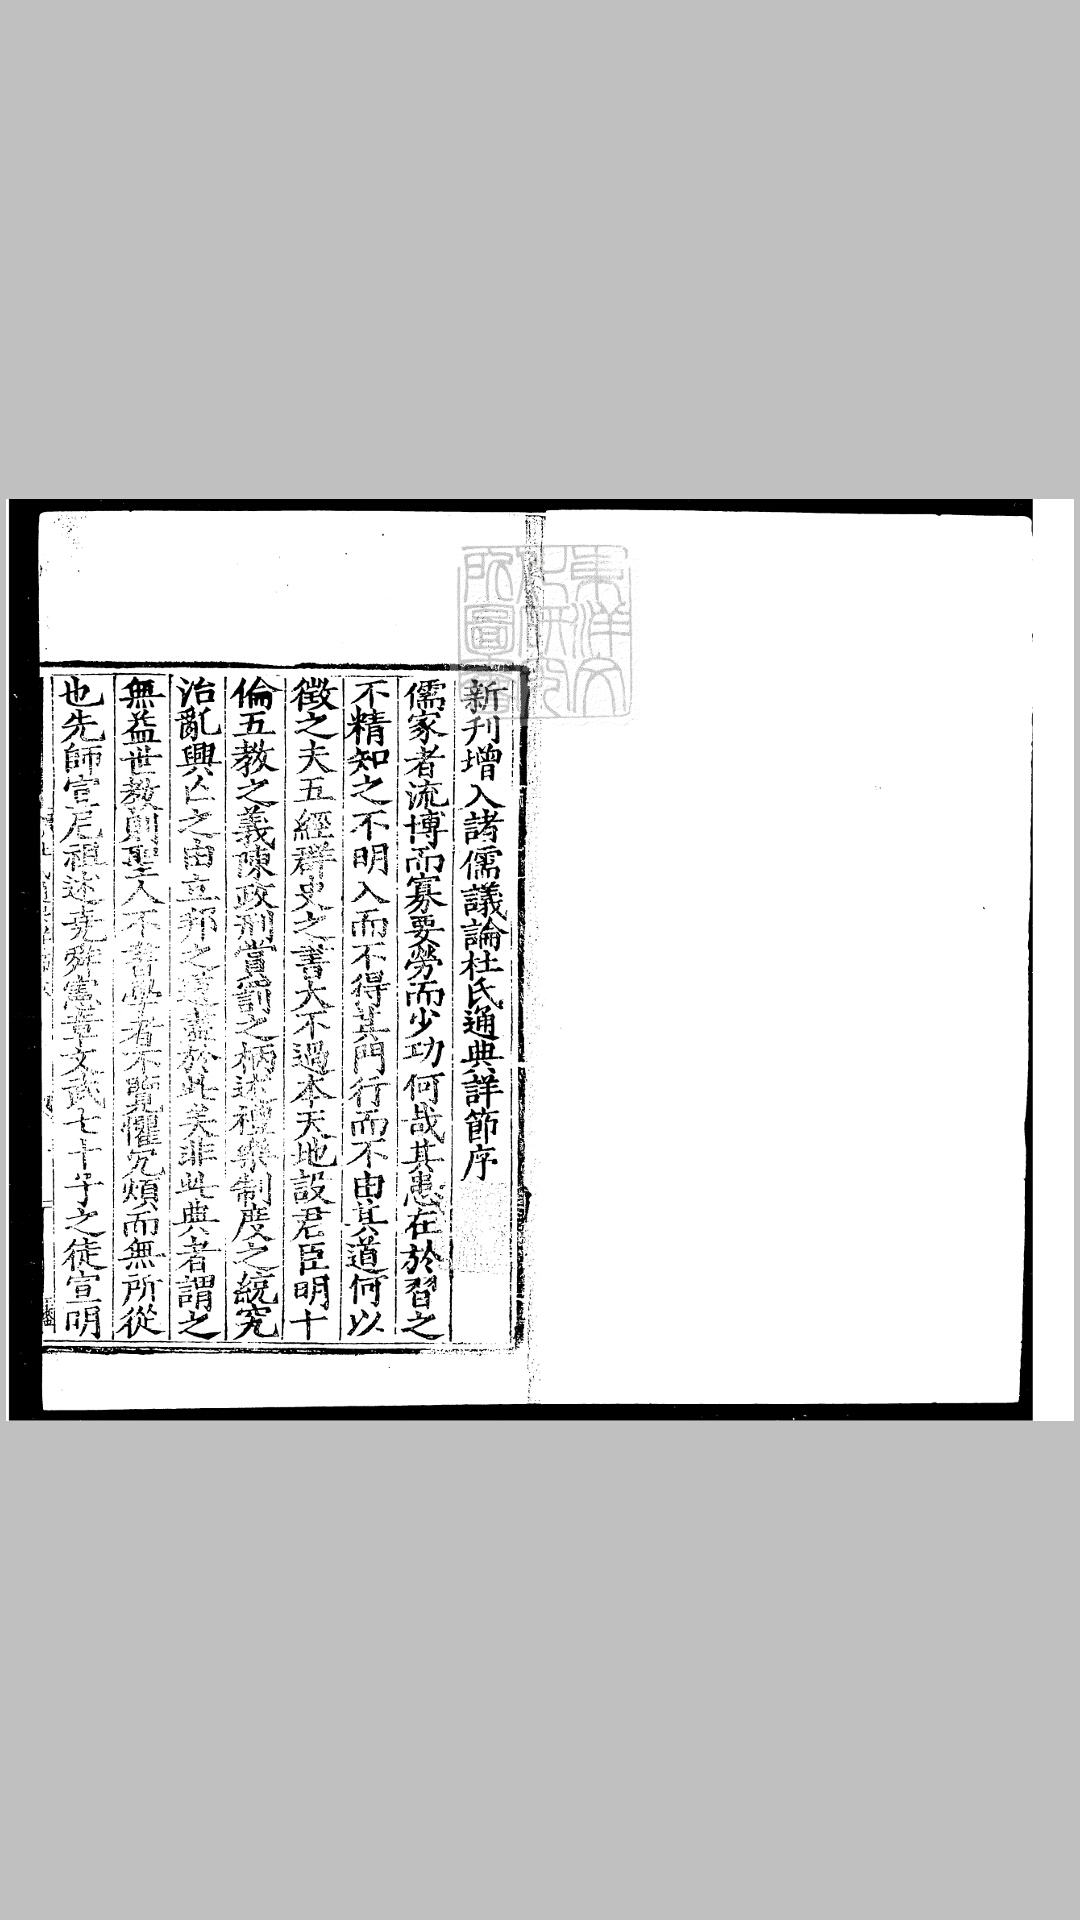 新刊增入諸儒議論杜氏通典詳節序
儒家者流博而寡要勞而少功何哉其患在於習之
不精知之不明入而不得其門行而不由其道何以
徵之夫五經群史之書大不過本天地設君臣明十
倫五教之義陳政刑賞罰之柄述禮樂制度之統究
治亂興亡之由立邦之道盡於此矣非此典者謂之
無益世教則聖人不書學者不覽懼冗煩而無所從
也先師宣尼祖述堯舜憲章文武七十子之徒宣明